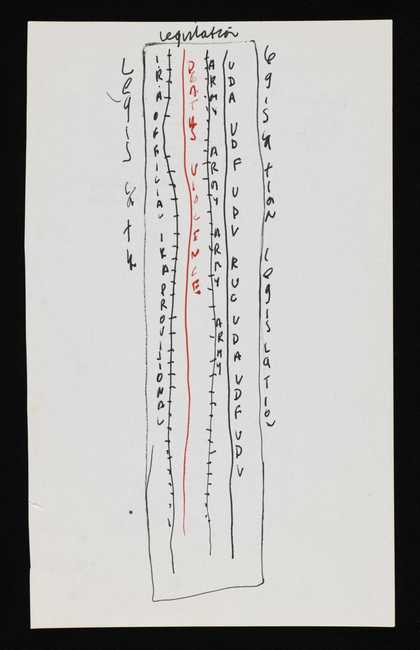 legislation
Legislatio
IRA OFFICIAL IRA PROVISIONAL
DEATHS VIOLENCE
ARMY ARMY ARMY ARMY
UDA UDF UDV RUC UDA UDF UDV
legislation legislation